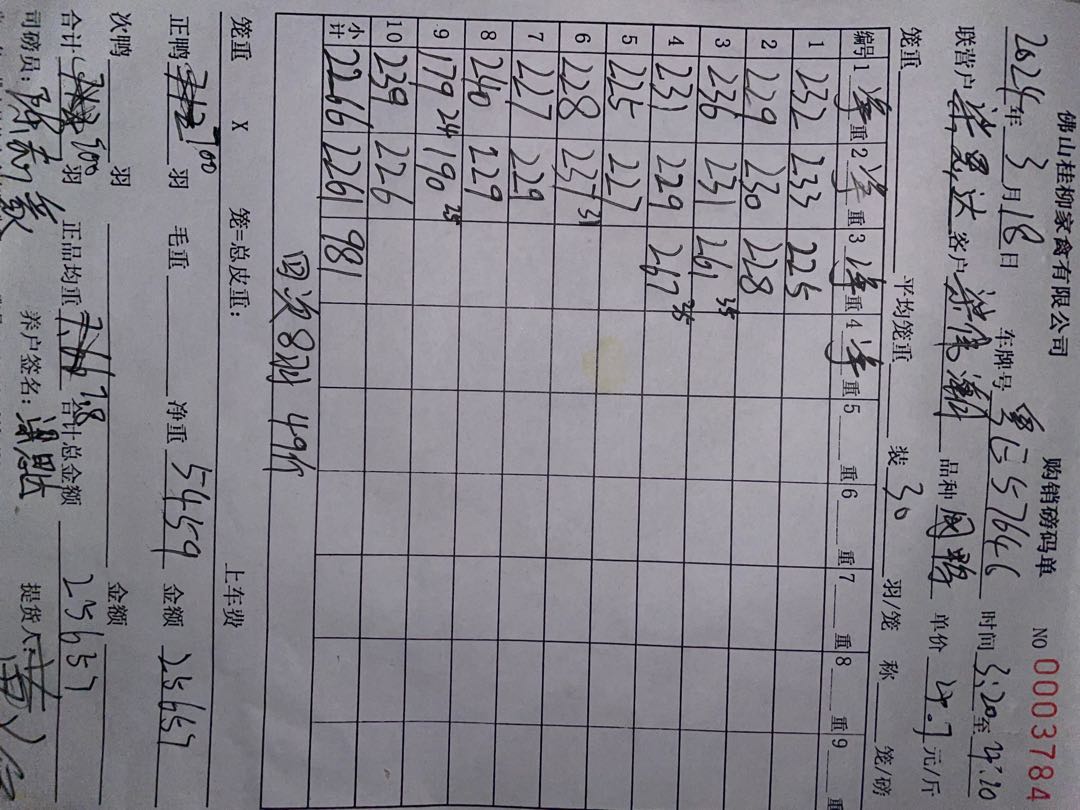 佛山桂柳家禽有限公司 购销磅码单 NO 0003784
2024年3月18日 车牌号 57646 时间 3:20至4:20
联营户 客户 品种 单价 4.7 元/斤
笼重 平均笼重 装 30 羽/笼 称 笼/磅
编号 1 净重 2 净重 3 净重 4 净重 5 重 6 重 7 重 8 重 9 重
1 232 233 225
2 229 230 228
3 236 231 261 35
4 231 229 267 35
5 225 227
6 228 237 31
7 227 229
8 240 229
9 179 24 190 25
10 239 226
小计 2266 2261 981
四次8只 49斤
笼重 X 笼=总皮重: 上车费
正鸭 700 羽 毛重 净重 5459 金额 25657
次鸭 羽 金额
合计 500 羽 正品均重 7.8 合计总金额 25657
司磅员: 养户签名: 提货人: